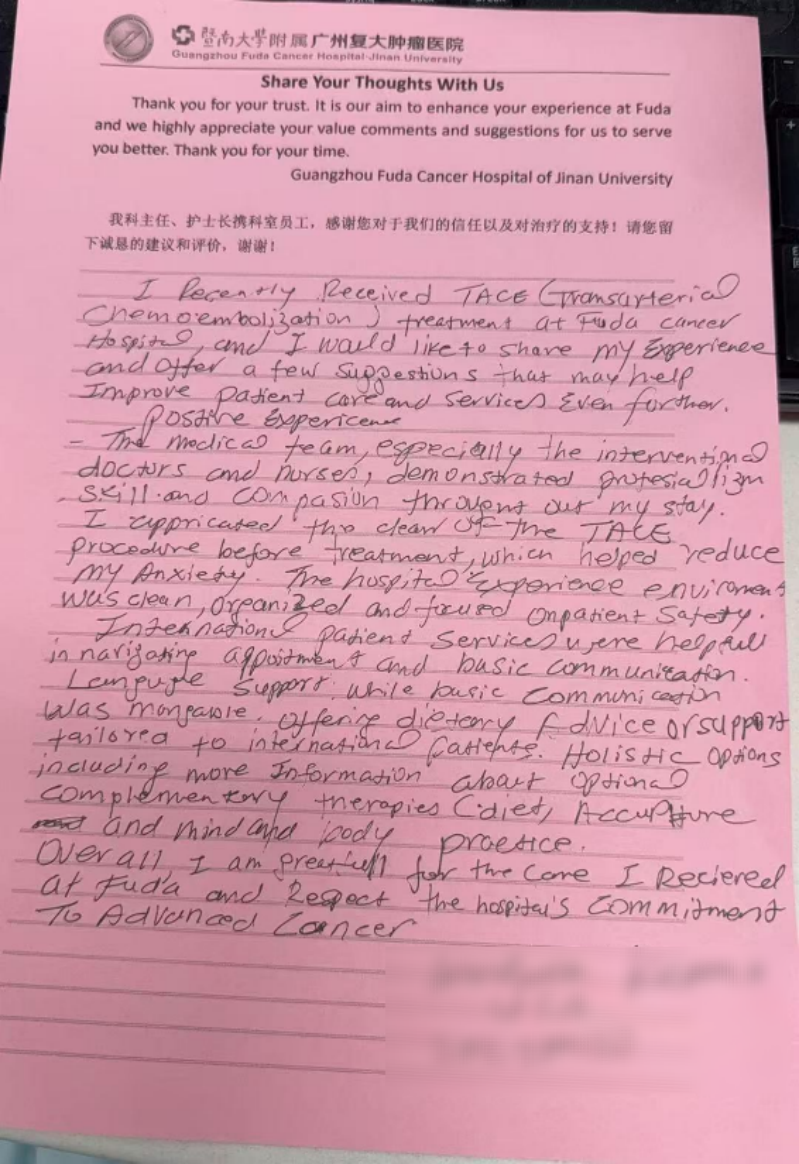 暨南大學附属广州复大肿瘤医院
Guangzhou Fuda Cancer Hospital·Jinan University
Share Your Thoughts With Us
Thank you for your trust. It is our aim to enhance your experience at Fuda
and we highly appreciate your value comments and suggestions for us to serve
you better. Thank you for your time.
Guangzhou Fuda Cancer Hospital of Jinan University
我科主任、护士长携科室员工，感谢您对于我们的信任以及对治疗的支持！请您留
下诚恳的建议和评价，谢谢！
I Recently Received TACE (Transarterial
Chemoembolization) treatment at Fuda cancer
Hospital, and I would like to share my Experience
and offer a few suggestions that may help
Improve patient care and services Even further.
Postive Expericence
- The medical team, especially the interventional
doctors and nurses, demonstrated protesialism
skill and Compasion throughent out my stay.
I appricated the clear of the TACE
procedure before treatment, which helped reduce
My Anxiety. The hospital Experience enviroment
was clean, organized and focused on patient Safety.
International patient Services were helpfull
in navigating appoitment and basic communication.
Langugle Support: while basic Communication
was mangable. offering dietary Advice or support
tailored to international Patients. Holistic options
including more Information about optional
complementary therapies (diet, Accupture
and mind and body practice.
Overall, I am greatfull for the Care I Recieved
at Fuda and Respect the hospital's Commitment
To Advanced Cancer